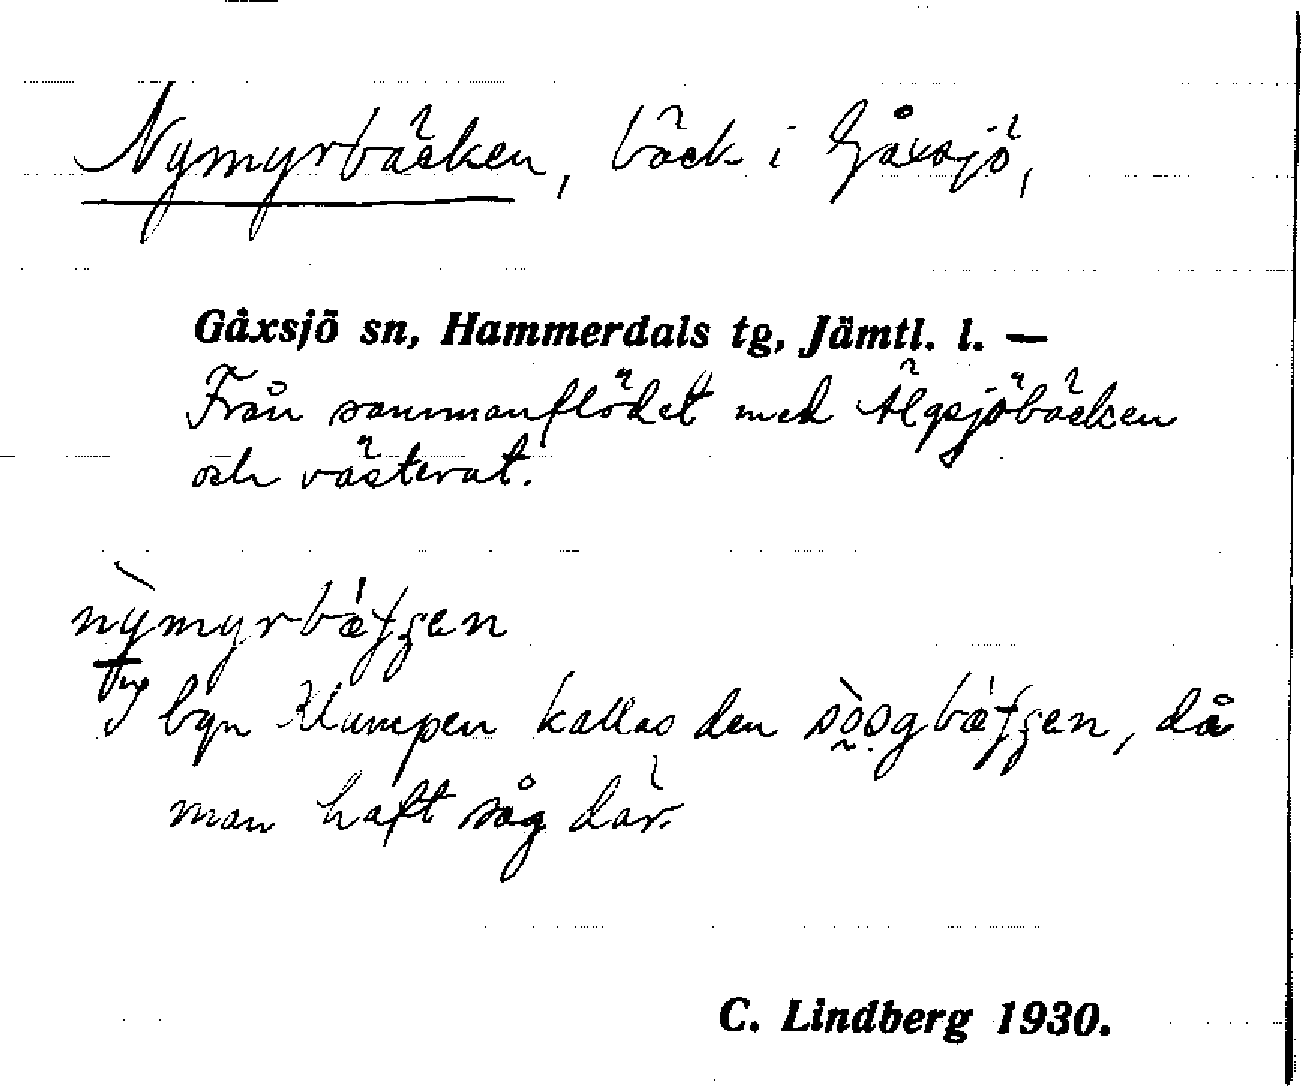 Nymyrbäcken, bäck i Gåxsjö,
Gåxsjö sn, Hammerdals tg, Jämtl. l. —
Från sammanflödet med Älgsjöbäcken
och västerut.
I byn Klumpen kallas den då
man haft såg där.
C. Lindberg 1930.